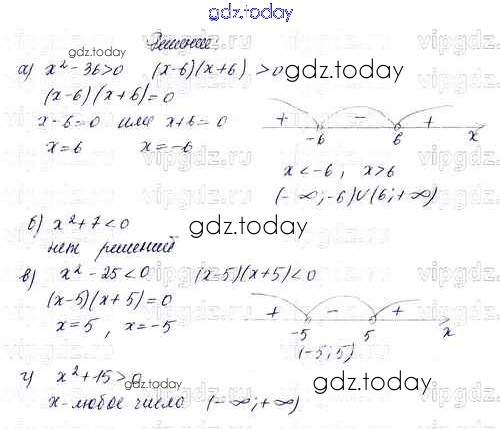 gdz.today
Решение:
а) x² - 36 > 0 (x-6)(x+6) > 0
(x-6)(x+6) = 0
x-6=0 или x+6=0
x=6 x=-6
+ - +
-6 6 x
x < -6, x > 6
(-∞;-6)∪(6;+∞)
б) x² + 7 < 0
нет решений
gdz.today
в) x² - 25 < 0 (x-5)(x+5) < 0
(x-5)(x+5) = 0
x=5, x=-5
+ - +
-5 5 x
(-5;5)
г) x² + 15 > 0
x-любое число (-∞;+∞)
gdz.today
gdz.today
gdz.today